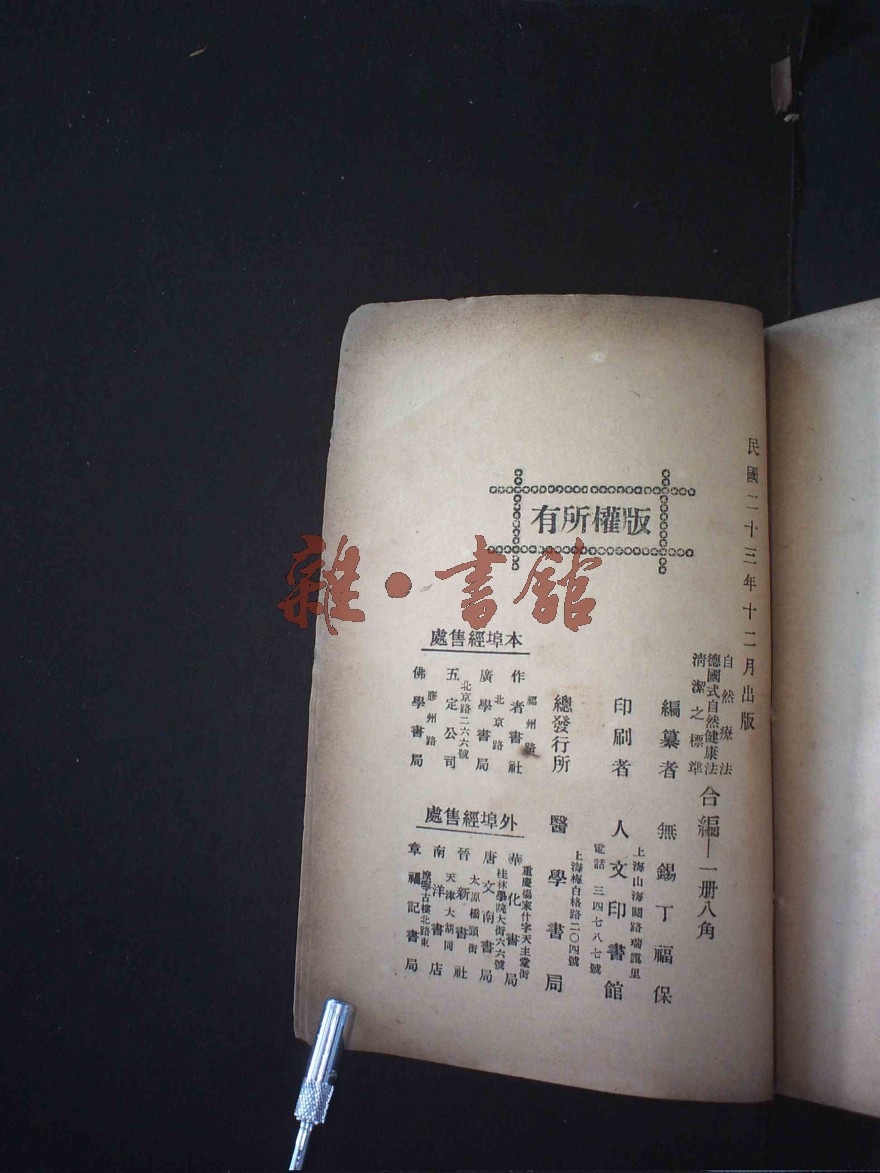 民國二十三年十二月出版
自然療法
德國式自然健康法
清潔之標準
合編—一册八角
編纂者 無錫丁福保
印刷者 人文印書館
上海山海關路瑞靄里
電話 三四七八七號
總發行所 醫學書局
上海梅白格路二〇四號
版權所有
本埠經售處
福州路
作者書社
北京路
廣學書局
北京路二六六號
五定公司
膠州路
佛學書局
外埠經售處
重慶楊家什字天主堂街
華化書局
桂林學院大街六六號
唐文南書局
太原橋頭街
晉新書社
天津大胡同
南洋書店
遼寧古樓北路東
章福記書局
雜·書館